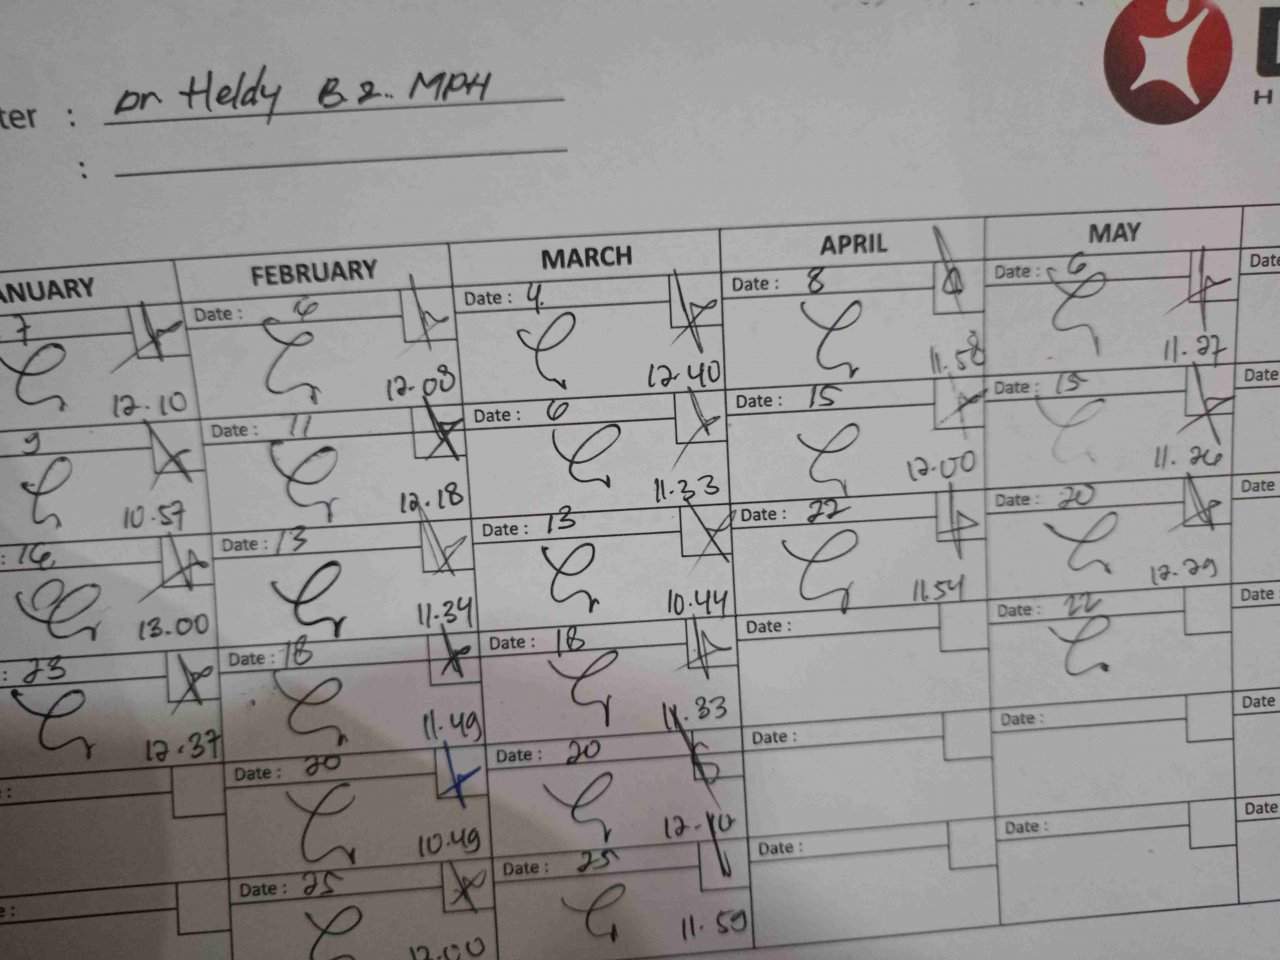 ter : Dr Heldy B.Z.. MPH
:
H
ANUARY FEBRUARY MARCH APRIL MAY
7 Date : 6 Date : 4 Date : 8 Date : 6 Date
12.10 12.08 12.40 11.58 11.27
9 Date : 11 Date : 6 Date : 15 Date : 15 Date
10.57 12.18 11.33 12.00 11.26
: 16 Date : 13 Date : 13 Date : 22 Date : 20 Date
13.00 11.34 10.44 11.54 12.29
: 23 Date : 18 Date : 18 Date : Date : 22 Date
12.37 11.49 11.33
: Date : 20 Date : 20 Date : Date : Date
10.49 12.10
e : Date : 25 Date : 25 Date : Date : Date
12.00 11.59